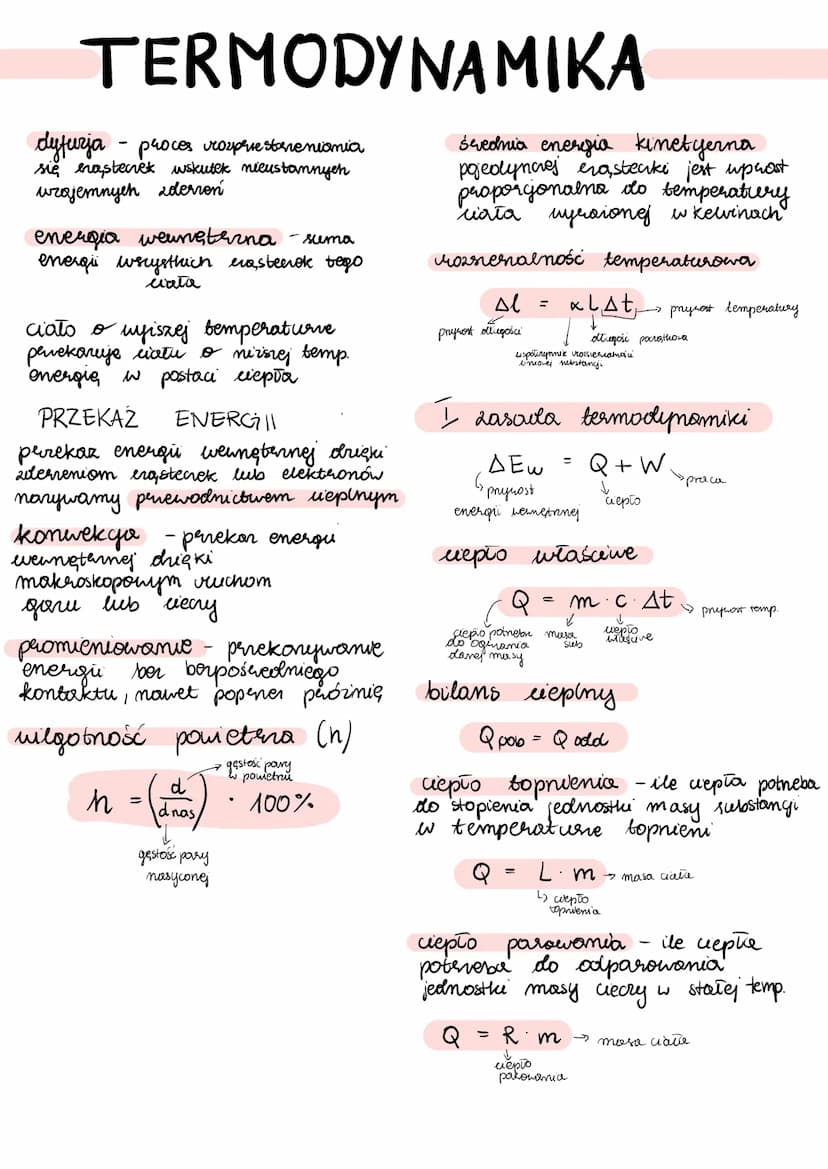 TERMODYNAMIKA
dyfuzja - proces rozprzestrzeniania
się cząsteczek wskutek nieustannych
wzajemnych zderzeń
energia wewnętrzna - suma
energii wszystkich cząsteczek tego
ciała
ciało o wyższej temperaturze
przekazuje ciału o niższej temp.
energię w postaci ciepła
PRZEKAŻ ENERGII
przekaz energii wewnętrznej dzięki
zderzeniom cząsteczek lub elektronów
nazywamy przewodnictwem cieplnym
konwekcja - przekaz energii
wewnętrznej dzięki
makroskopowym ruchom
gazu lub cieczy
promieniowanie - przekazywanie
energii bez bezpośredniego
kontaktu, nawet poprzez próżnię
wilgotność powietrza (h)
gęstość pary
w powietrzu
h = (d/dnas) · 100%
gęstość pary
nasyconej
średnia energia kinetyczna
pojedynczej cząsteczki jest wprost
proporcjonalna do temperatury
ciała wyrażonej w kelwinach
rozszerzalność temperaturowa
Δl = αLΔt → przyrost temperatury
przyrost długości
długość początkowa
współczynnik rozszerzalności
liniowej substancji
I zasada termodynamiki
ΔEw = Q + W
praca
przyrost
energii wewnętrznej
ciepło
ciepło właściwe
Q = m · c · Δt → przyrost temp.
ciepło potrzebne
do ogrzania
danej masy
masa
sub
ciepło
właściwe
bilans cieplny
Q pob = Q odd
ciepło topnienia - ile ciepła potrzeba
do stopienia jednostki masy substancji
w temperaturze topnieni
Q = L · m → masa ciała
ciepło
topnienia
ciepło parowania - ile ciepła
potrzeba do odparowania
jednostki masy cieczy w stałej temp.
Q = R · m → masa ciała
ciepło
parowania